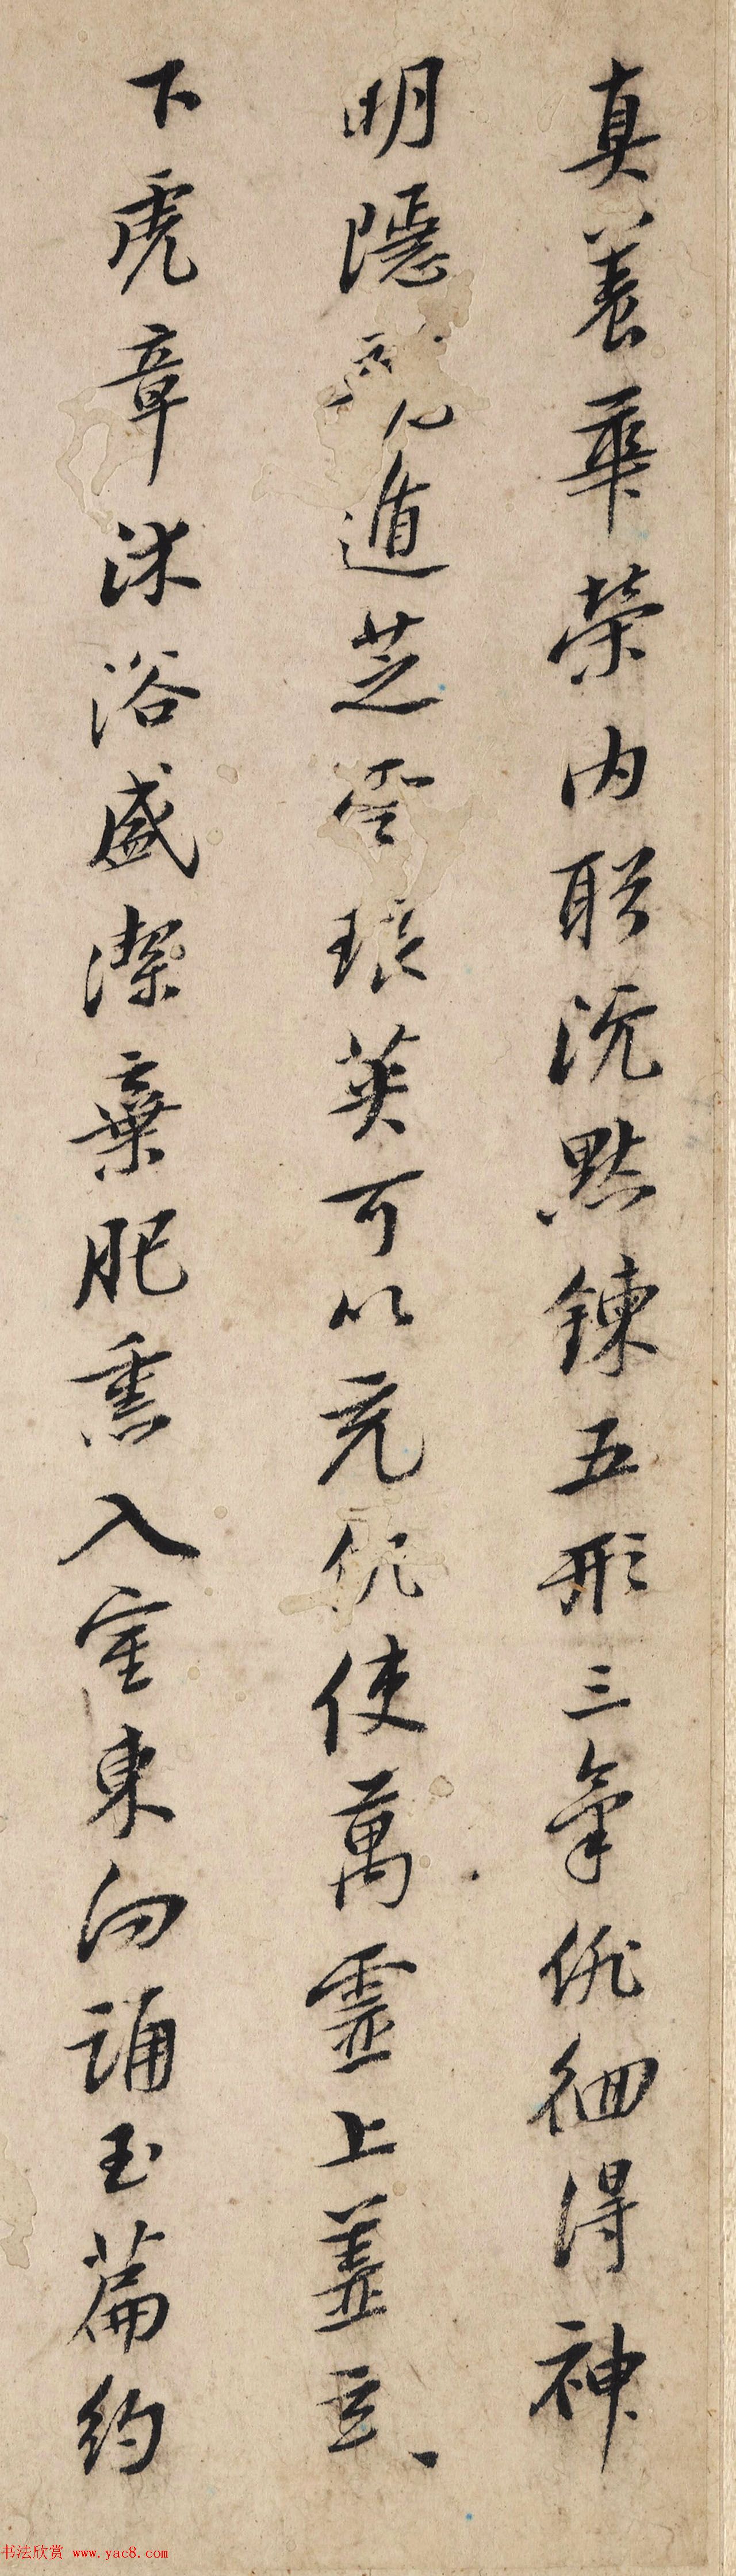 真養華榮内盼沉默鍊五形三氣俳佪得神
明隱遁芝雲琅英可以充飢使萬靈上蓋玄、
下虎章沐浴盛潔棄肥熏入室東向誦玉篇約
书法欣赏 www.yac8.com